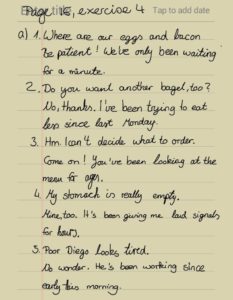 Page 16, exercise 4
Tap to add date
a) 1. Where are our eggs and bacon
Be patient! We've only been waiting
for a minute.
2. Do you want another bagel, too?
No, thanks. I've been trying to eat
less since last Monday.
3. Hm. I can't decide what to order.
Come on! You've been looking at the
menu for ages.
4. My stomach is really empty.
Mine, too. It's been giving me loud signals
for hours.
5. Poor Diego looks tired.
No wonder. He's been working since
early this morning.